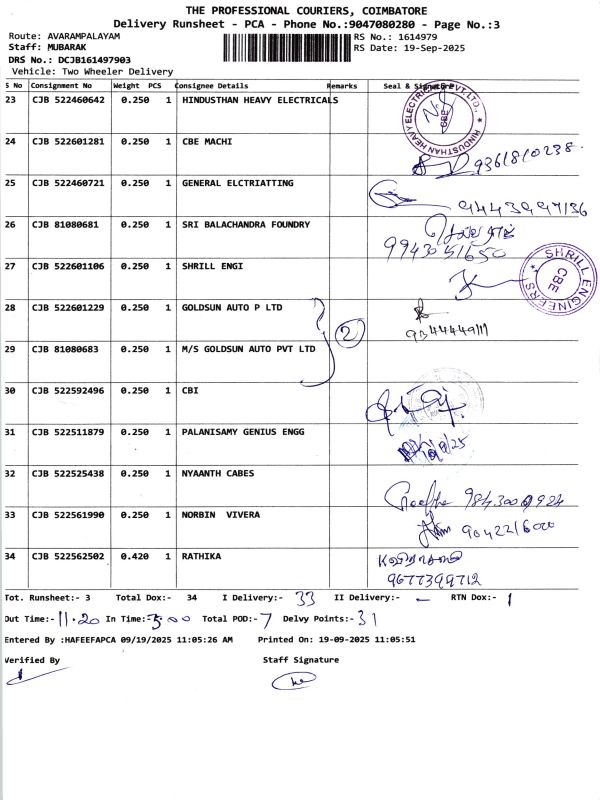 THE PROFESSIONAL COURIERS, COIMBATORE
Delivery Runsheet - PCA - Phone No.:9047080280 - Page No.:3
Route: AVARAMPALAYAM RS No.: 1614979
Staff: MUBARAK RS Date: 19-Sep-2025
DRS No.: DCJB161497903
Vehicle: Two Wheeler Delivery
S No Consignment No Weight PCS Consignee Details Remarks Seal & Signature
23 CJB 522460642 0.250 1 HINDUSTHAN HEAVY ELECTRICALS
HINDUSTHAN HEAVY ELECTRICAL PVT. LTD., CBE
24 CJB 522601281 0.250 1 CBE MACHI
25 CJB 522460721 0.250 1 GENERAL ELCTRIATTING
26 CJB 81080681 0.250 1 SRI BALACHANDRA FOUNDRY
27 CJB 522601106 0.250 1 SHRILL ENGI
SHRILL ENGINEERS CBE
28 CJB 522601229 0.250 1 GOLDSUN AUTO P LTD
2
29 CJB 81080683 0.250 1 M/S GOLDSUN AUTO PVT LTD
30 CJB 522592496 0.250 1 CBI
31 CJB 522511879 0.250 1 PALANISAMY GENIUS ENGG
32 CJB 522525438 0.250 1 NYAANTH CABES
33 CJB 522561990 0.250 1 NORBIN VIVERA
9042216000
34 CJB 522562502 0.420 1 RATHIKA
9677399712
Tot. Runsheet:- 3 Total Dox:- 34 I Delivery:- 33 II Delivery:- - RTN Dox:- 1
Out Time:- 11.20 In Time:- 5.00 Total POD:- 7 Delvy Points:- 31
Entered By :HAFEEFAPCA 09/19/2025 11:05:26 AM Printed On: 19-09-2025 11:05:51
Verified By Staff Signature